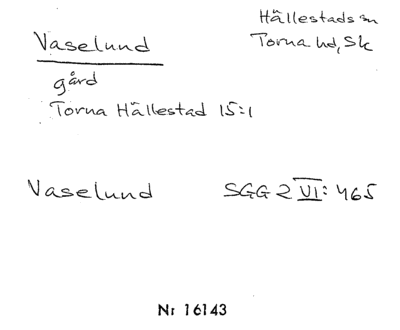 Vaselund
Hällestads sn
Torna hd, Sk
gård
Torna Hällestad 15:1
Vaselund SGG 2 VI: 465
Nr 16143